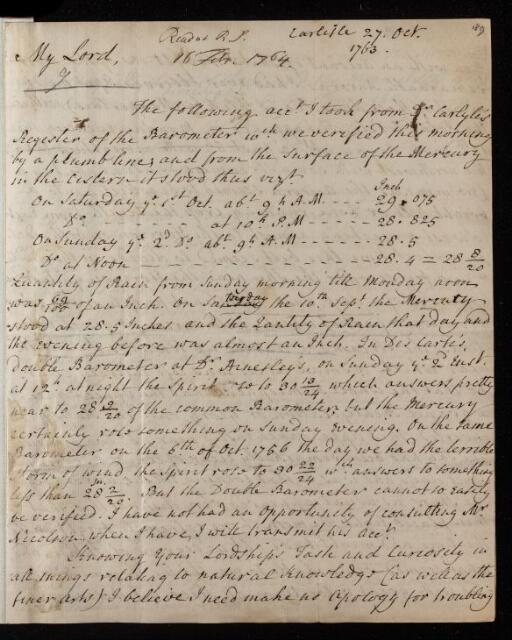 189
Carlisle 27. Oct.
1763.
Read at R.S.
16 Febr. 1764.
My Lord,
The following acct. I took from Dr. Carlyle's
Register of the Barometer wch. we verified this morning
by a plumb line, and from the surface of the Mercury
in the cistern it stood thus vizt.
Inch
On Saturday ye. 1st Oct. abt. 9h A.M ---- 29.075
Do. at 10h P.M ---- 28.825
On Sunday ye. 2d Do. abt. 9h A.M ------ 28.5
Do. at Noon ---- 28.4 = 28 8/20
Quantity of Rain from Sunday morning till Monday noon
was of an Inch. On Tuesday the 10th Sept. the Mercury
stood at 28.5 Inches and the Qantity of Rain that day and
the evening before was almost an Inch. In Des Cartes
double Barometer at Dr. Ainesley's, on Sunday ye. 2d Inst.
at 12h at night the Spirit to 30 13/24 which answers pretty
near to 28 of the common Barometer, but the Mercury
certainly rose something on Sunday evening. On the same
Barometer on the 6th of Oct. 1756 the day we had the terrible
storm of wind the Spirit rose to 30 22/24 wch. answers to something
less than 28 2/20. But the Double Barometer cannot so easily
be verified. I have not had an opportunity of consulting Mr.
Nicolson, when I have, I will transmit his acct.
Knowing Your Lordship's Tast and Curiosity in
all things relating to natural Knowledge (as well as the
finer arts) I believe I need make no Apology for troubling